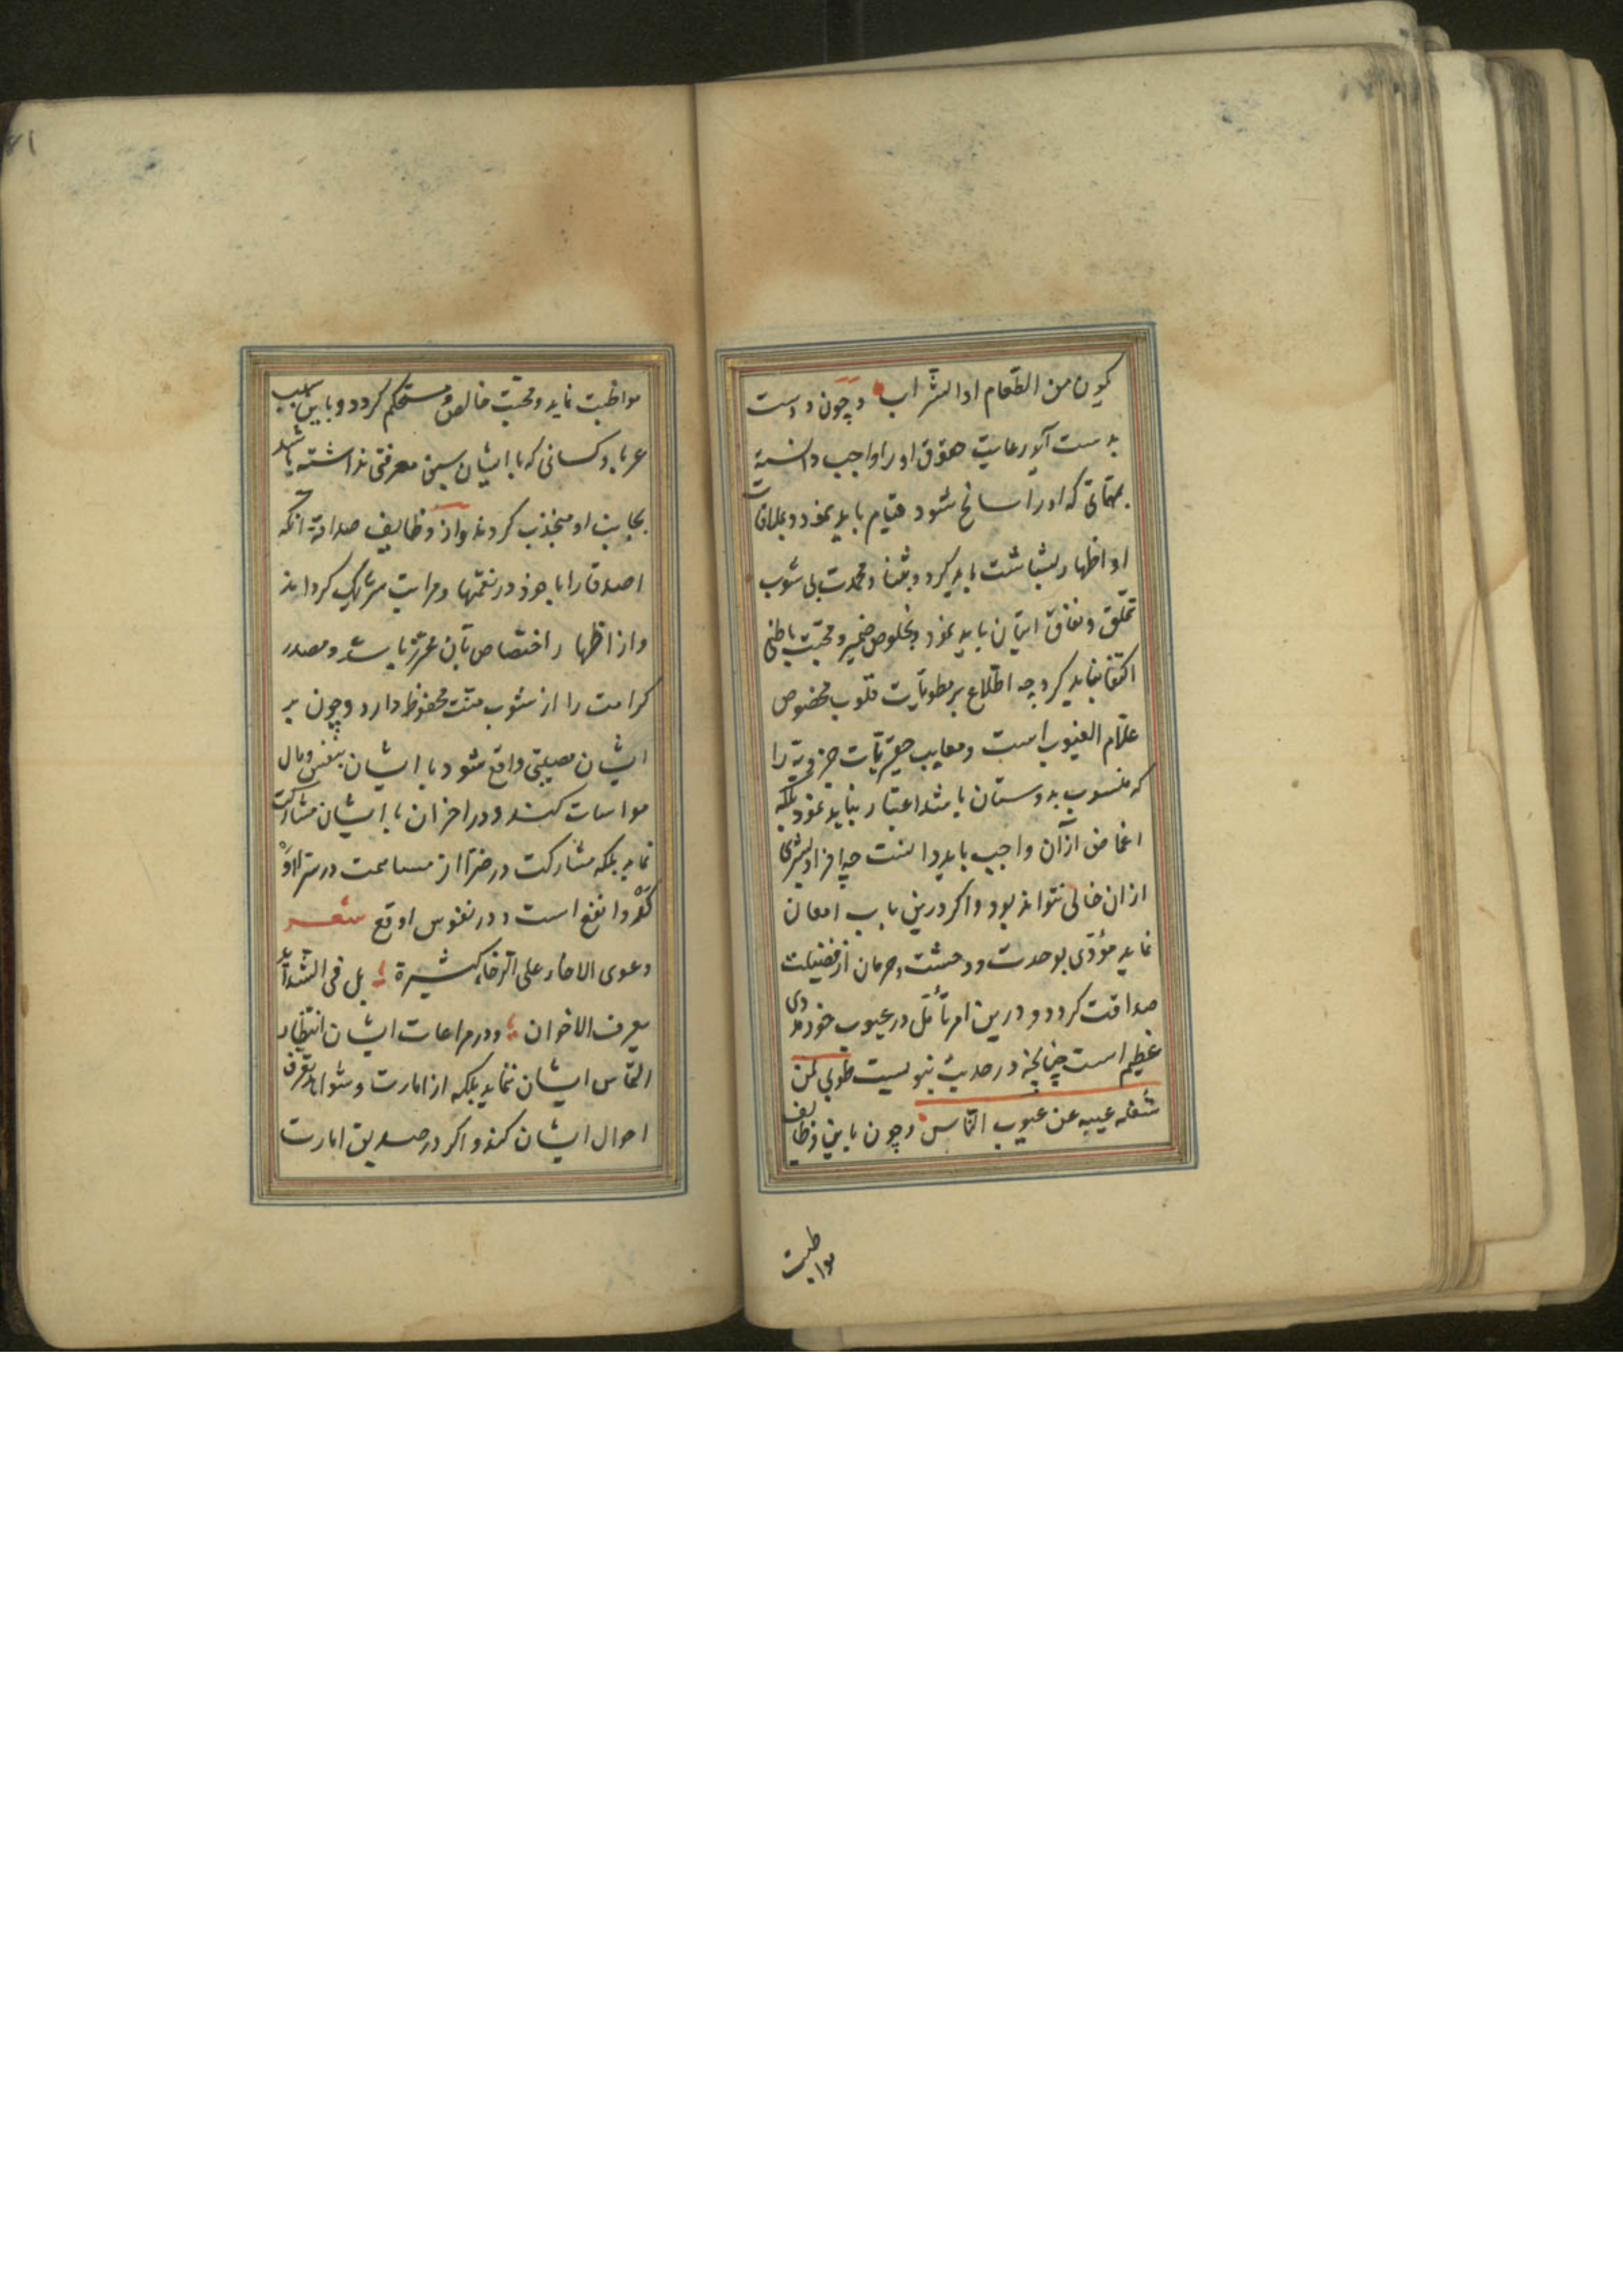 یکون من الطّعام او الشّراب و چون دوست
بدست آید رعایت حقوق او را واجب دانسته
بمهمّاتی که او را سانح شود قیام باید نمود و بملاقات
او اظهار بشاشت باید کرد و بثنا و محمدت بی شوب
تملّق و نفاق اتیان باید نمود و بخلوص ضمیر و محبّت باطنی
اکتفا نباید کرد چه اطّلاع بر مطویّات قلوب مخصوص
علّام الغیوب است و معایب جزویه را
که منسوب بدوستان باشد اعتبار نباید نمود بلکه
اغماض از آن واجب باید دانست چه افراد بشری
ازان خالی نتواند بود و اکر درین باب امعان
نماید مؤدّی بوحدت و وحشت و حرمان از فضیلت
صداقت کردد و درین امر تأمّل در عیوب خود مددی
عظیم است چنانچه در حدیث نبویست طوبی لمن
شغله عیبه عن عیوب النّاس و چون باین وظایف
مواظبت
۶۱
مواظبت نماید و محبّت خالص و مستحکم کردد و باین سبب
غربا و کسانی که با ایشان سبق معرفتی نداشته باشد
بجانب او منجذب کردند و از وظایف صداقة انکه
اصدقا را با خود در نعمتها و مراتب شریک کرداند
و از اظهار اختصاص بآن محرز باشد و مصدر
کرامت را از شوب منّت محفوظ دارد و چون بر
ایشان مصیبتی واقع شود با ایشان بنفس و مال
مواسات کند و در احزان با ایشان مشارکت
نماید بلکه مشارکت در ضرّا از مسامحت در سرّا
و انفع است و در نفوس اوقع شعر
دعوی الاخاء علی الرّخاء کثیرة بل فی الشّدائد
یعرف الاخوان و در مراعات ایشان انتظار
التماس ایشان ننماید بلکه از امارت و شواهد تعرّف
احوال ایشان کند و اکر در صدیق امارت